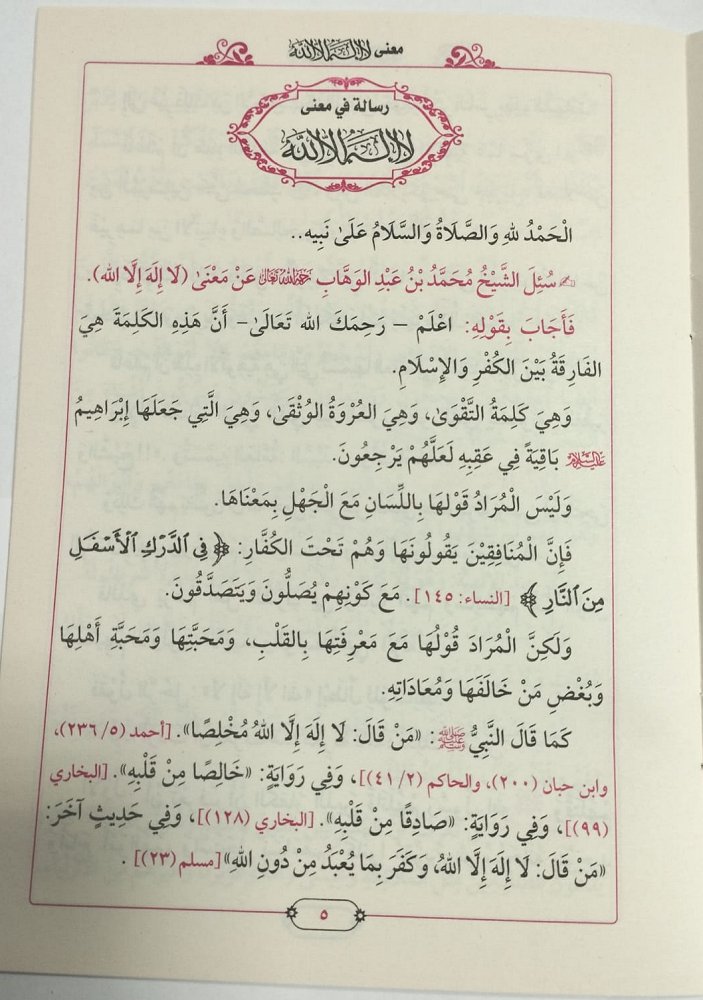 معنى لا إله إلا الله
رسالة في معنى
لا إله إلا الله
الْحَمْدُ للهِ وَالصَّلَاةُ وَالسَّلَامُ عَلَىٰ نَبِيه..
سُئِلَ الشَّيْخُ مُحَمَّدُ بْنُ عَبْدِ الوَهَّابِ رَحِمَهُ اللهُ تَعَالَى عَنْ مَعْنَىٰ (لَا إِلَهَ إِلَّا الله).
فَأَجَابَ بِقَوْلِهِ: اعْلَمْ – رَحِمَكَ الله تَعَالَىٰ- أَنَّ هَذِهِ الكَلِمَةَ هِيَ
الفَارِقَةُ بَيْنَ الكُفْرِ وَالإِسْلَامِ.
وَهِيَ كَلِمَةُ التَّقْوَىٰ، وَهِيَ العُرْوَةُ الوُثْقَىٰ، وَهِيَ الَّتِي جَعَلَهَا إِبْرَاهِيمُ
عَلَيْهِ السَّلَام بَاقِيَةً فِي عَقِبِهِ لَعَلَّهُمْ يَرْجِعُونَ.
وَلَيْسَ الْمُرَادُ قَوْلهَا بِاللِّسَانِ مَعَ الْجَهْلِ بِمَعْنَاهَا.
فَإِنَّ الْمُنَافِقِيْنَ يَقُولُونَهَا وَهُمْ تَحْتَ الكُفَّارِ: ﴿فِي الدَّرْكِ الْأَسْفَلِ
مِنَ النَّارِ﴾ [النساء: ١٤٥]. مَعَ كَوْنِهِمْ يُصَلُّونَ وَيَتَصَدَّقُونَ.
وَلَكِنَّ الْمُرَادَ قُوْلُهَا مَعَ مَعْرِفَتِهَا بِالقَلْبِ، وَمَحَبَّتِهَا وَمَحَبَّةِ أَهْلِهَا
وَبُغْضِ مَنْ خَالَفَهَا وَمُعَادَاتِهِ.
كَمَا قَالَ النَّبِيُّ ﷺ: «مَنْ قَالَ: لَا إِلَهَ إِلَّا اللهُ مُخْلِصًا». [أحمد (٥/ ٢٣٦)،
وابن حبان (٢٠٠)، والحاكم (٢/ ٤١)]، وَفِي رَوَايَةٍ: «خَالِصًا مِنْ قَلْبِهِ». [البخاري
(٩٩)]، وَفِي رَوَايَةٍ: «صَادِقًا مِنْ قَلْبِهِ». [البخاري (١٢٨)]، وَفِي حَدِيثٍ آخَرَ:
«مَنْ قَالَ: لَا إِلَهَ إِلَّا اللهُ، وَكَفَرَ بِمَا يُعْبَدُ مِنْ دُونِ اللهِ» [مسلم (٢٣)].
٥